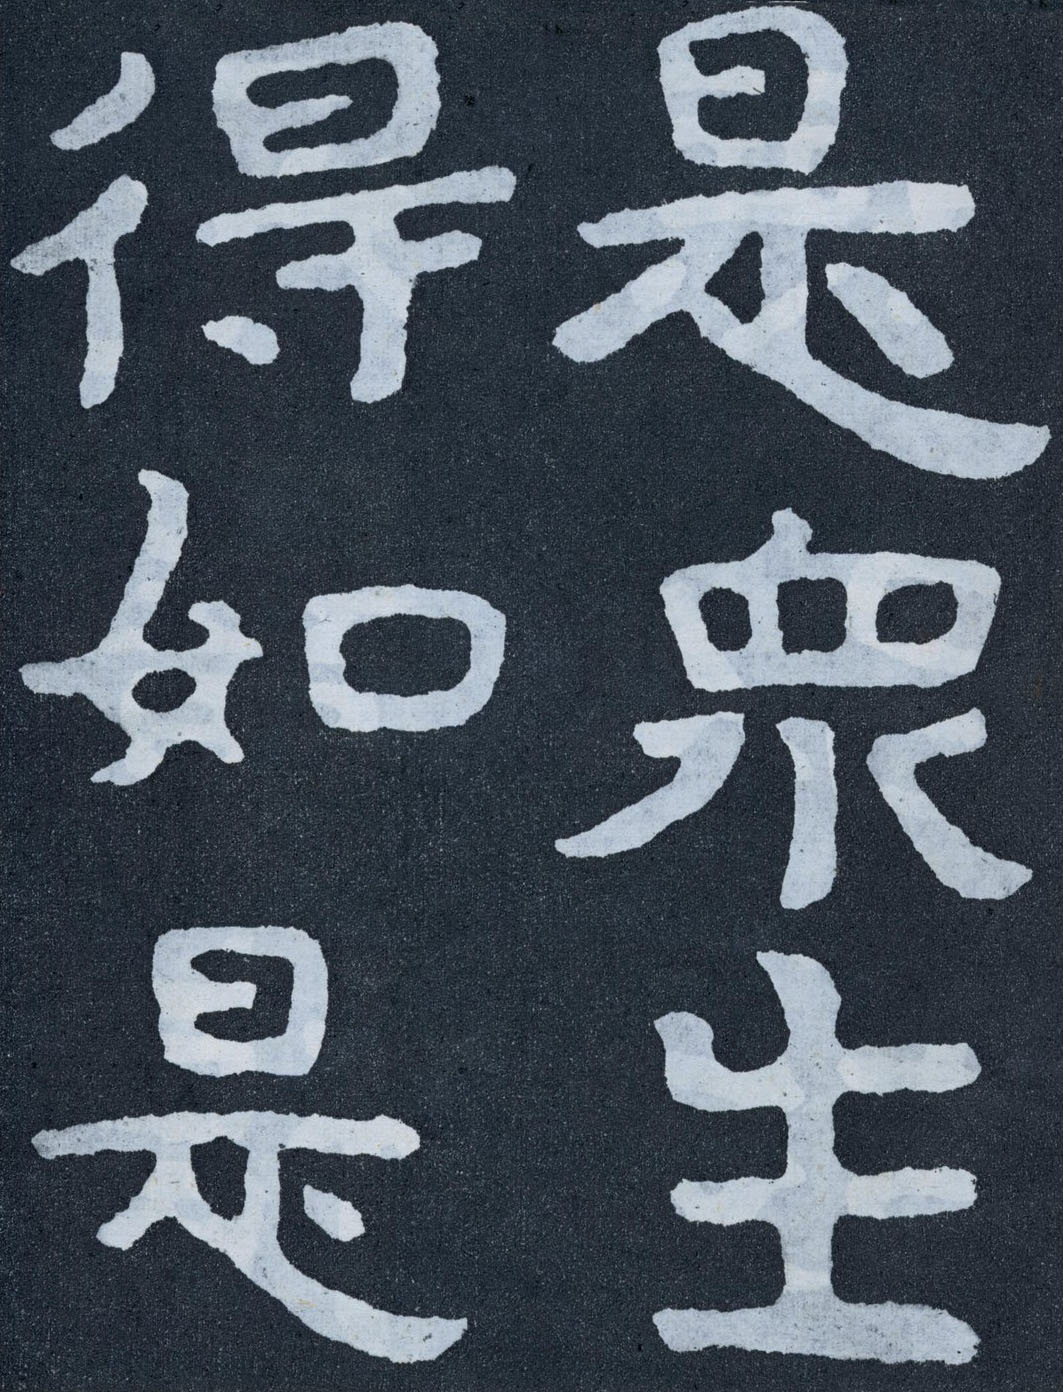 是眾生
得如是